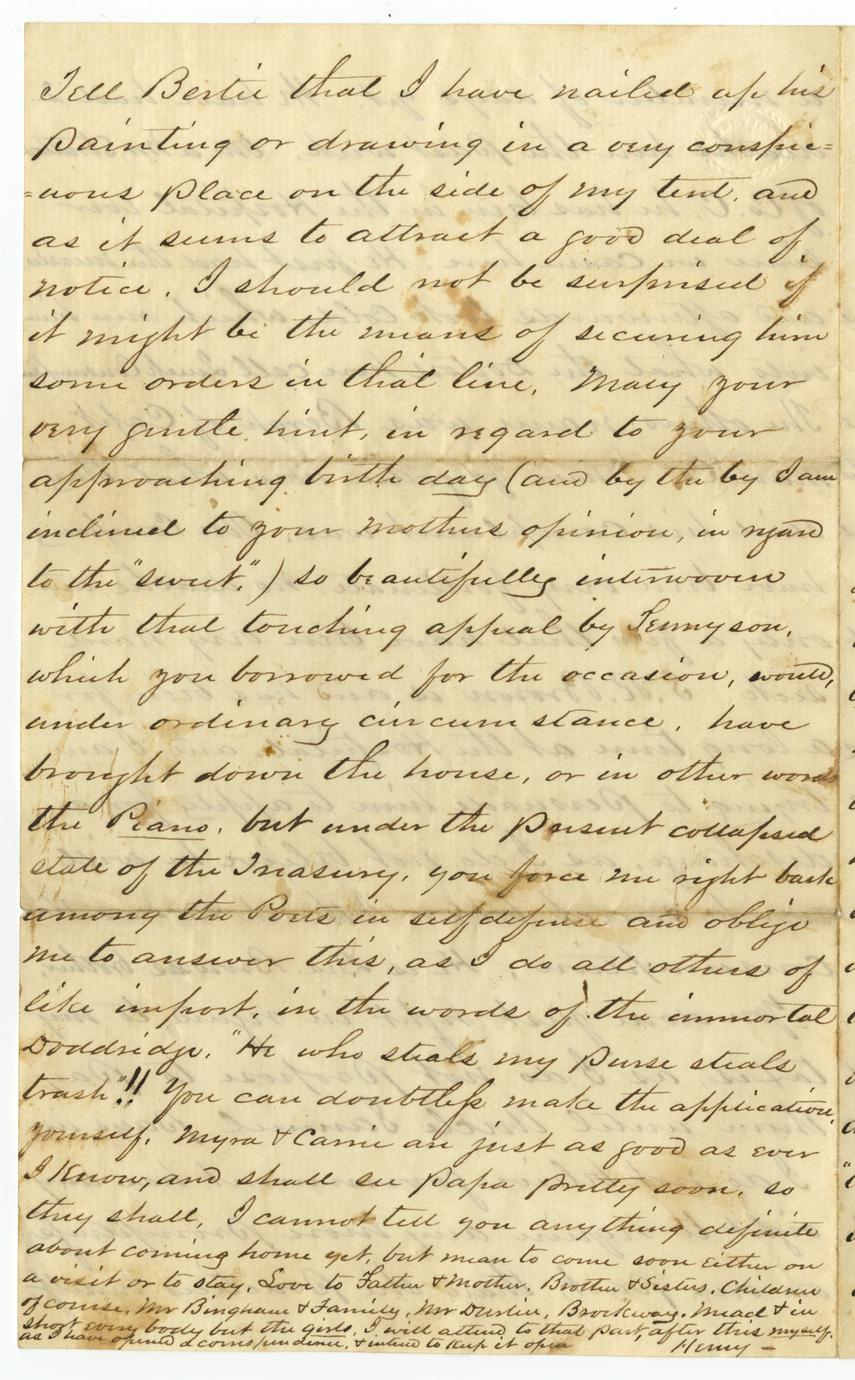 Tell Bertie that I have nailed up his
painting or drawing in a very conspic=
=uous place on the side of my tent, and
as it seems to attract a good deal of
notice. I should not be surprised if
it might be the means of securing him
some orders in that line. Mary your
very gentle hint, in regard to your
approaching birth day (and by the by I am
inclined to your Mothers opinion, in regard
to the "sweet.") so beautifully interwoven
with that touching appeal by Tennyson,
which you borrowed for the occasion, would,
under ordinary circumstance, have
brought down the house, or in other words
the Piano, but under the present collapsed
state of the Treasury, you force me right back
among the Poets in self defense and oblige
me to answer this, as I do all others of
like import, in the words of the immortal
Doddridge. "He who steals my purse steals
trash"!! You can doubtless make the application
yourself. Myra & Carrie are just as good as ever
I know, and shall see Papa pretty soon, so
they shall, I cannot tell you anything definite
about coming home yet, but mean to come soon either on
a visit or to stay. Love to Father & Mother, Brother & Sisters, Children
of course, Mr Bingham & Family, Mr Durlin, Brockway, Mead & in
short every body but the girls, I will attend to that part, after this myself.
as I have opened a correspondence, & intend to keep it open
Henry -